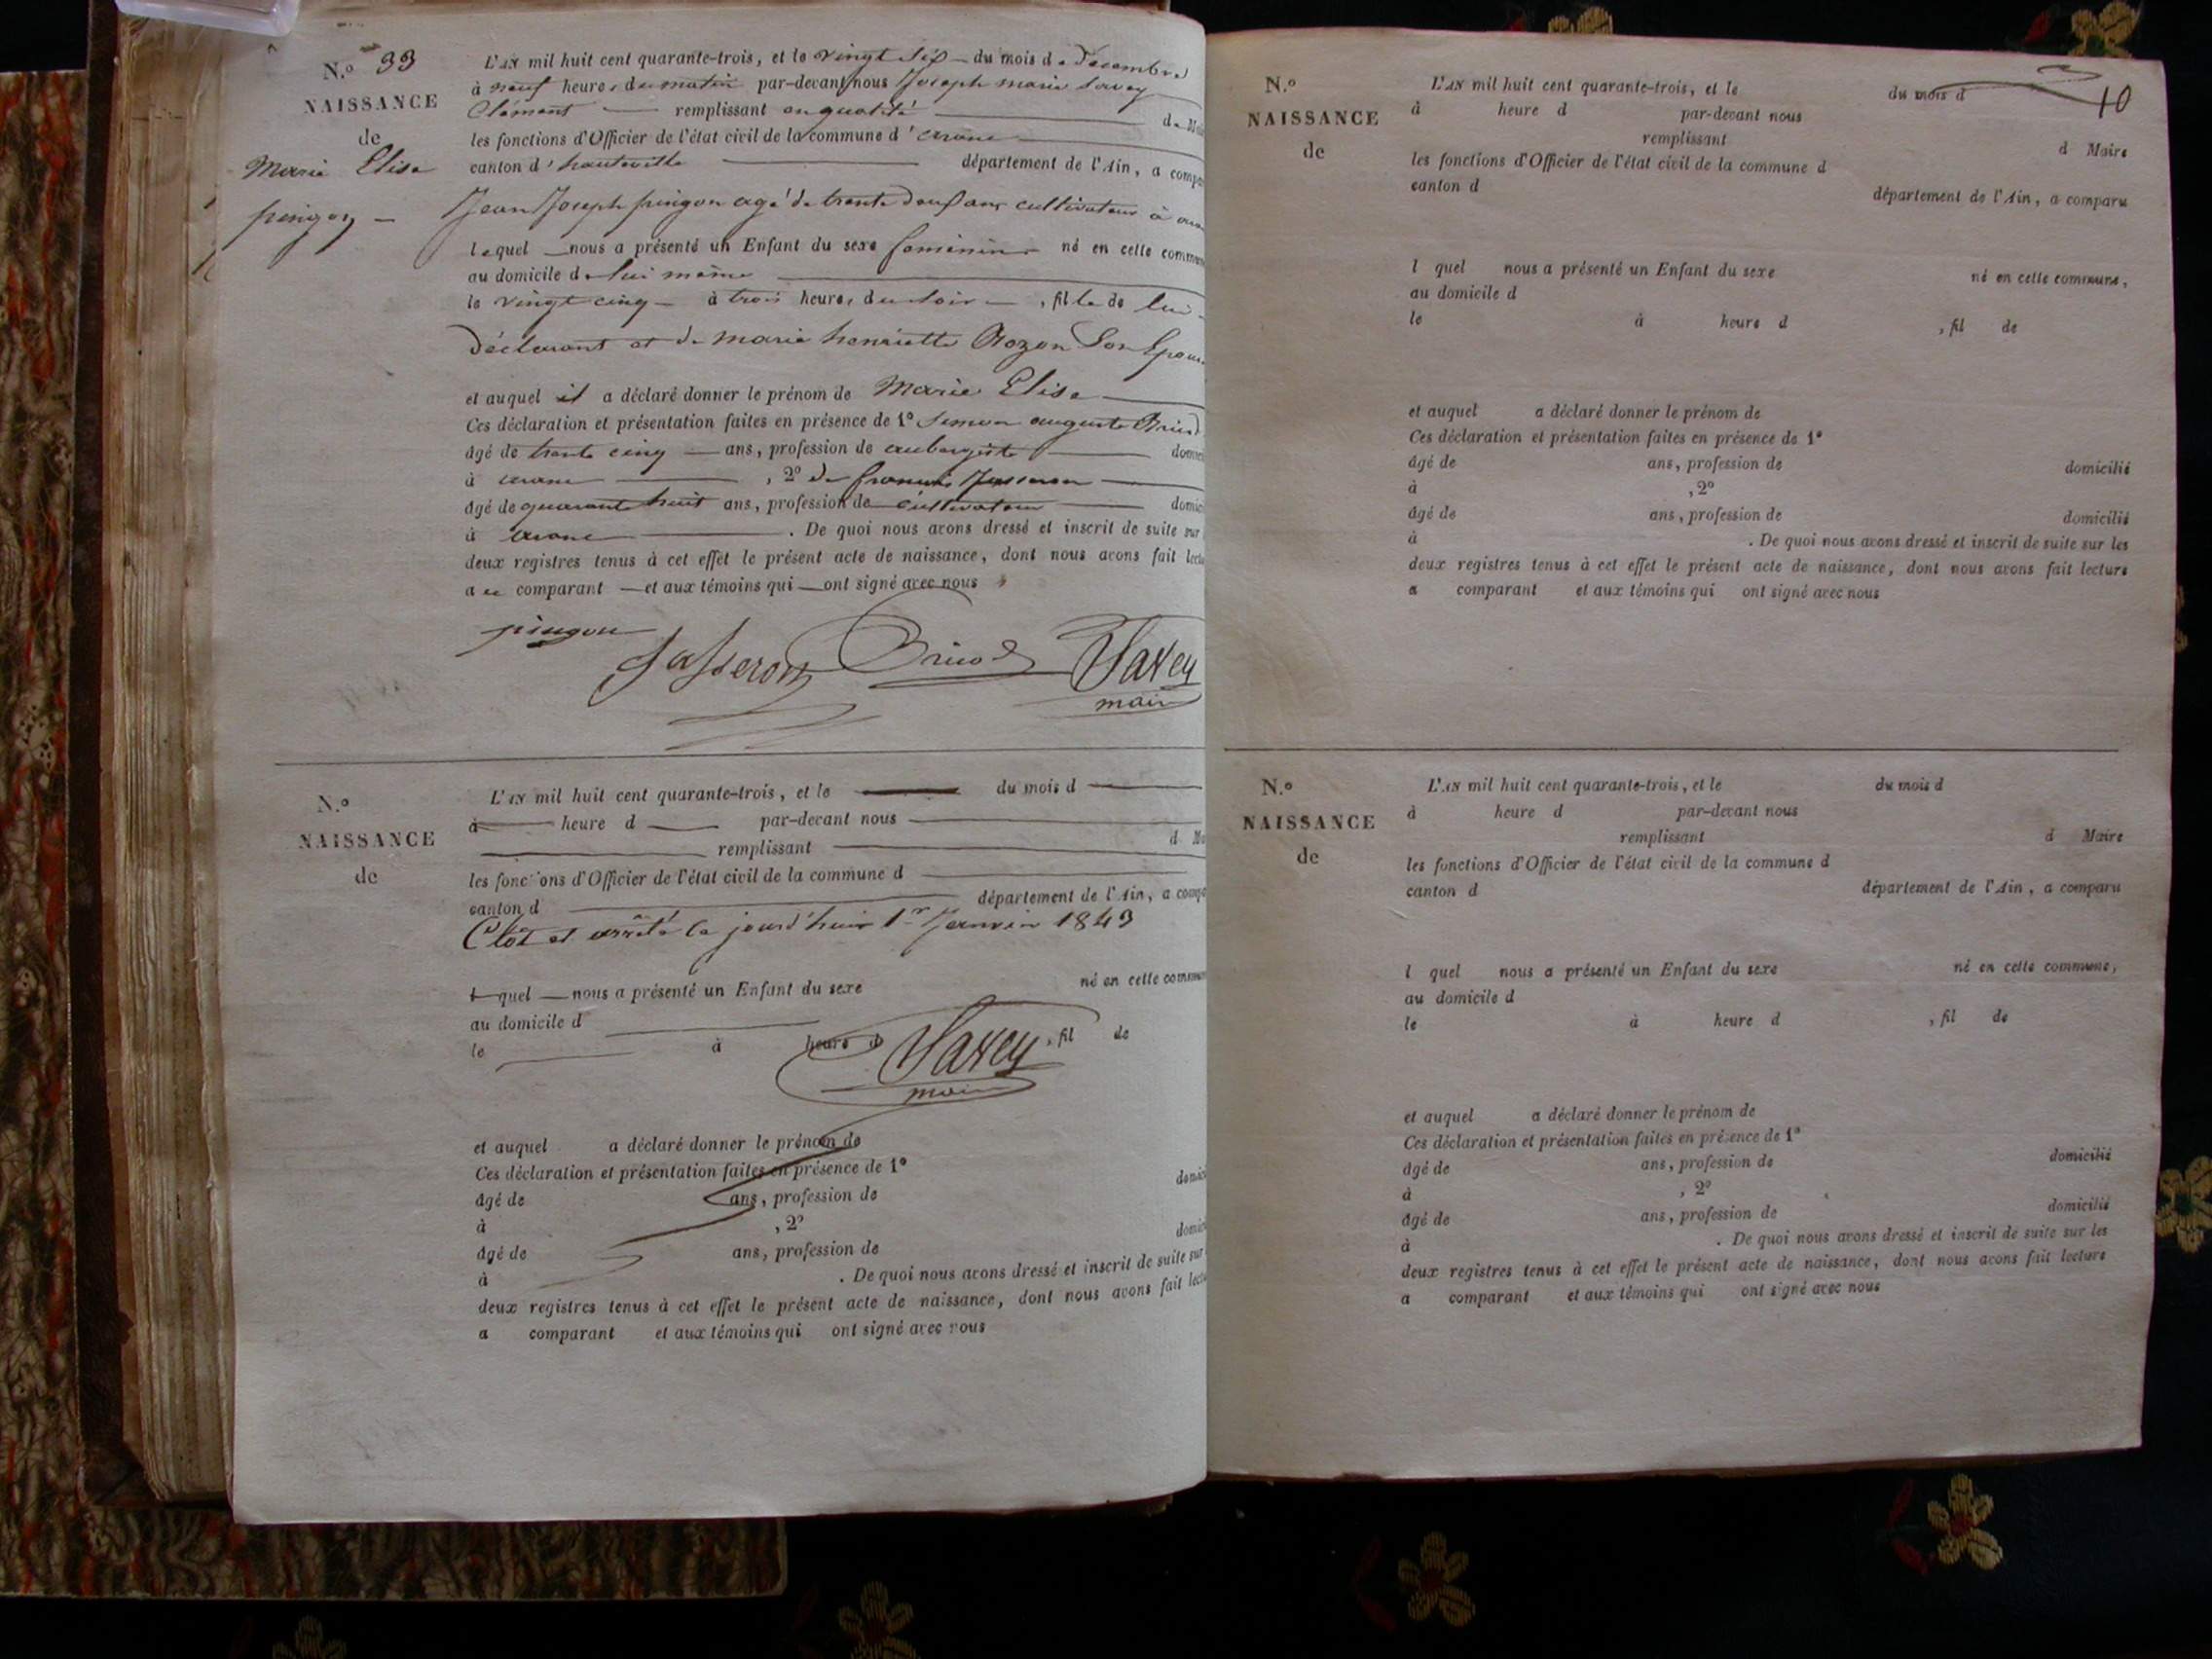 N.º 33
NAISSANCE
de
Marie Elise
pingon
L'AN mil huit cent quarante-trois, et le vingt sept du mois de Décembre
à neuf heures du matin par-devant nous Joseph marie savey
Clément remplissant en qualité de
les fonctions d'Officier de l'état civil de la commune d'arane
canton d'hauteville département de l'Ain, a
Jean Joseph pingon agé de trente ans cultivateur à
lequel nous a présenté un Enfant du sexe féminin né en cette
au domicile de lui même
le vingt cinq à trois heures du soir, fille de lui
déclarant et de marie henriette Rozon son
et auquel il a déclaré donner le prénom de Marie Elise
Ces déclaration et présentation faites en présence de 1º auguste
âgé de trente cinq ans, profession de aubergiste
à arane, 2º de
âgé de quarante huit ans, profession de cultivateur
à arane. De quoi nous avons dressé et inscrit de suite sur
deux registres tenus à cet effet le présent acte de naissance, dont nous avons fait
a comparant et aux témoins qui ont signé avec nous
pingon
Jasseron Savey
maire
N.º
NAISSANCE
de
L'AN mil huit cent quarante-trois, et le du mois d
à heure d par-devant nous
remplissant d
les fonctions d'Officier de l'état civil de la commune d
canton d département de l'Ain, a
Clos et arrêté ce jourd'huir 1er Janvier 1843
l quel nous a présenté un Enfant du sexe né en cette
au domicile d
le à heure d, fil de
Savey
maire
et auquel a déclaré donner le prénom de
Ces déclaration et présentation faites en présence de 1º
âgé de ans, profession de
à , 2º
âgé de ans, profession de
à . De quoi nous avons dressé et inscrit de suite sur
deux registres tenus à cet effet le présent acte de naissance, dont nous avons fait
a comparant et aux témoins qui ont signé avec nous
10
N.º
NAISSANCE
de
L'AN mil huit cent quarante-trois, et le du mois d
à heure d par-devant nous
remplissant d Maire
les fonctions d'Officier de l'état civil de la commune d
canton d département de l'Ain, a comparu
l quel nous a présenté un Enfant du sexe né en cette commune,
au domicile d
le à heure d , fil de
et auquel a déclaré donner le prénom de
Ces déclaration et présentation faites en présence de 1º
âgé de ans, profession de domicilié
à , 2º
âgé de ans, profession de domicilié
à . De quoi nous avons dressé et inscrit de suite sur les
deux registres tenus à cet effet le présent acte de naissance, dont nous avons fait lecture
a comparant et aux témoins qui ont signé avec nous
N.º
NAISSANCE
de
L'AN mil huit cent quarante-trois, et le du mois d
à heure d par-devant nous
remplissant d Maire
les fonctions d'Officier de l'état civil de la commune d
canton d département de l'Ain, a comparu
l quel nous a présenté un Enfant du sexe né en cette commune,
au domicile d
le à heure d , fil de
et auquel a déclaré donner le prénom de
Ces déclaration et présentation faites en présence de 1º
âgé de ans, profession de domicilié
à , 2º
âgé de ans, profession de domicilié
à . De quoi nous avons dressé et inscrit de suite sur les
deux registres tenus à cet effet le présent acte de naissance, dont nous avons fait lecture
a comparant et aux témoins qui ont signé avec nous